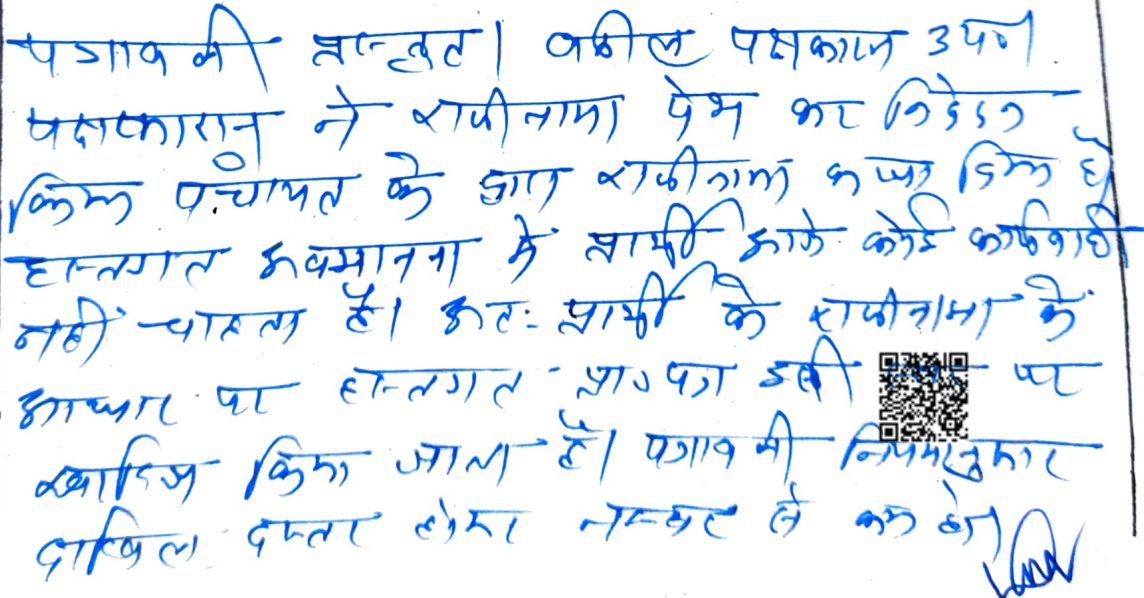 पत्रावली प्रस्तुत। वकील पक्षकारान उप०।
पक्षकारान ने राजीनामा पेश कर निवेदन
किया पंचायत के द्वारा राजीनामा करा दिया है
हस्तगत अवमानना में प्रार्थी आगे कोई कार्यवाही
नहीं चाहता है। अतः प्रार्थी के राजीनामा के
आधार पर हस्तगत प्रा० पत्र इसी पर
खारिज किया जाता है। पत्रावली नियमानुसार
दाखिल दफ्तर होकर नम्बर से कम हो।